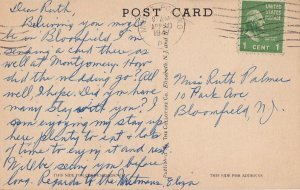 POST CARD
Dear Ruth
Believing you maybe
be in Bloomfield I'm
sending a card there as
well at Montgomery. How
did the wedding go? All
well I hope. Did you have
many stay with you? I
am enjoying my stay up
here plenty to eat + lots
of time to enjoy it and rest.
Will be seeing you before
long. Regards to the
Miss Ruth Palmer
10 Park Ave
Bloomfield N.J.
1 CENT 1
THIS SIDE FOR ADDRESS